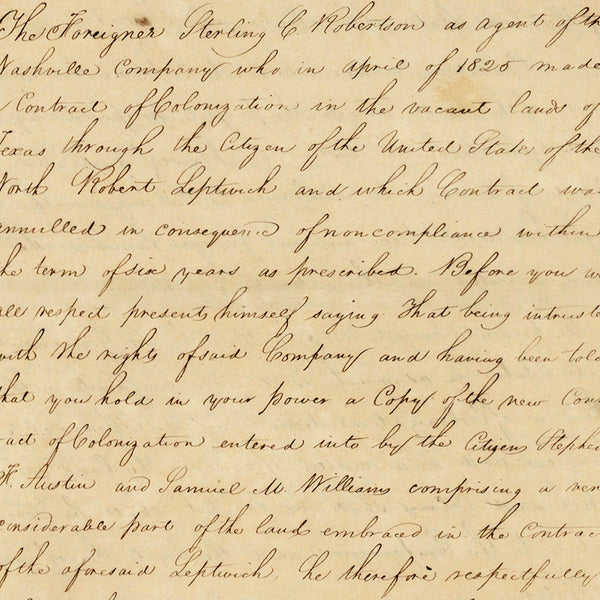 The Foreigner Sterling C Robertson as agent of th
Nashville Company who in april of 1825 made
a Contract of Colonization in the vacant lands of
Texas through the Citizen of the United States of the
North Robert Leptwich and which Contract wa
annulled in consequence of noncompliance within
the term of six years as prescribed. Before you w
all respect presents himself saying That being intruste
with the rights of said Company and having been told
that you hold in your power a Copy of the new Con
ract of Colonization entered into by the Citizens Stephe
F. Austin and Samuel M. Williams comprising a ver
considerable part of the land embraced in the Contrac
of the aforesaid Leptwich, he therefore respectfully